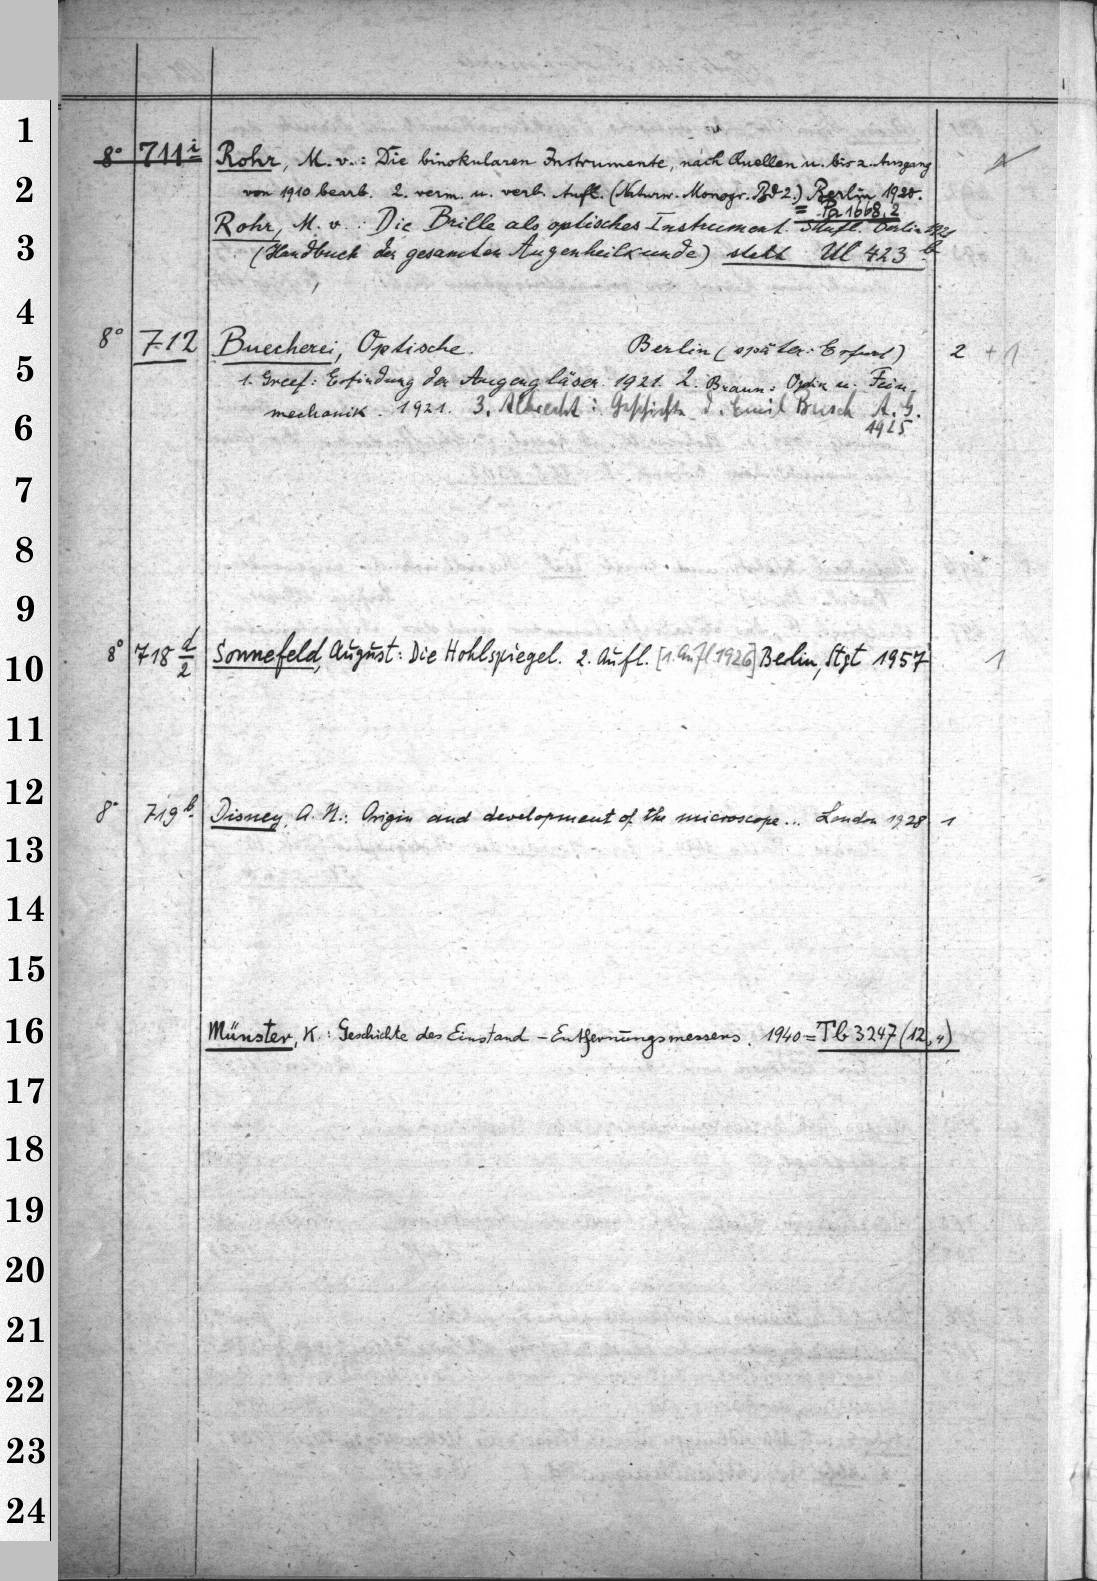 1
8° 711 i Rohr, M. v.: Die binokularen Instrumente, nach Quellen u. bis z. Ausgang
2
von 1910 bearb. 2. verm. u. verb. Aufl. (Naturw. Monogr. Bd 2.) Berlin 1920.
= Pa 1668, 2
Rohr, M. v.: Die Brille als optisches Instrument. Aufl. Berlin 1921
3
(Handbuch der gesamten Augenheilkunde) steht Ul 423 b
4
8° 712 Buecherei, Optische. Berlin (später: Erfurt) 2 + 1
5
1. Greef: Erfindung der Augengläser. 1921. 2. Braun: Optik u. Fein-
mechanik. 1921. 3. Albrecht: Geschichte d. Emil Busch A. G.
6
1925
7
8
9
10
8° 718 d/2 Sonnefeld, August: Die Hohlspiegel. 2. Aufl. [1. Aufl 1926] Berlin, Stgt 1957 1
11
12
8° 719 b. Disney, A. N.: Origin and development of the microscope... London 1928 1
13
14
15
16
Münster, K.: Geschichte des Einstand-Entfernungsmessers. 1940 = Tb 3247 (12, 4)
17
18
19
20
21
22
23
24